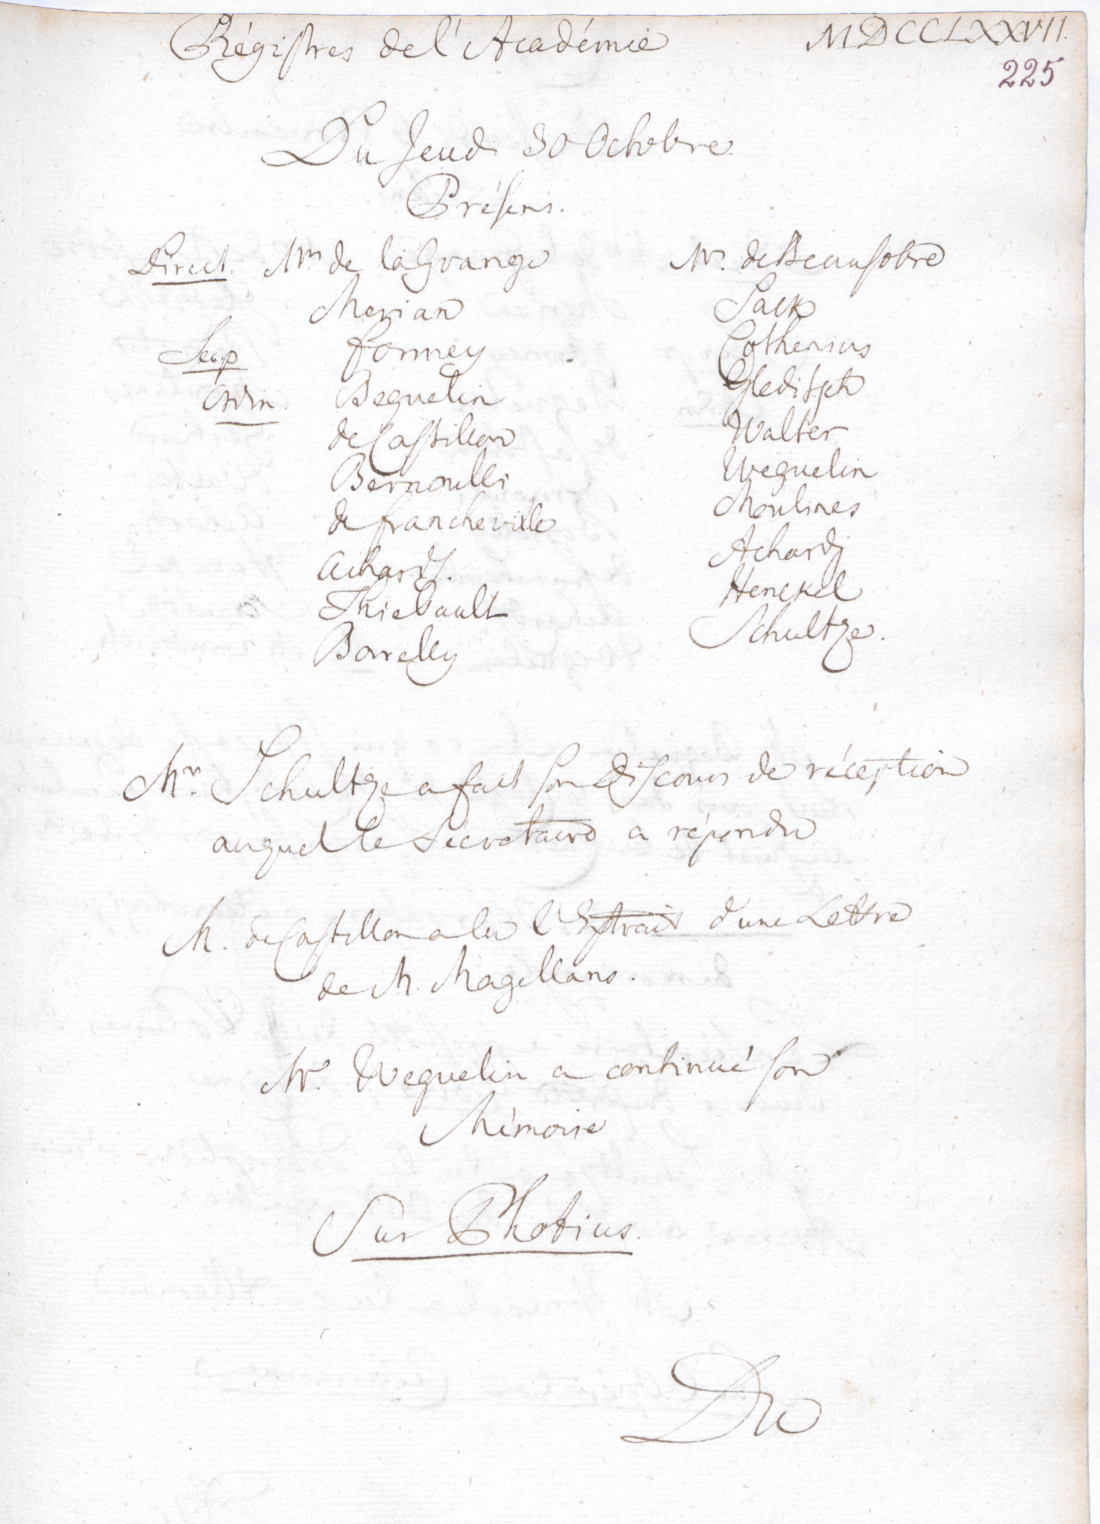 Régistres de l'Académie MDCCLXXVII.
225
Du Jeudi 30 Octobre.
Présens.
Direct. Mrs de la Grange
Merian
Secrp Formey
Ordin. Beguelin
de Castillon
Bernoulli
de Francheville
Achard S.
Thiebault
Borrelly
Mr. de Beausobre
Sack
Cothenius
Gleditsch
Walter
Weguelin
Moulines
Achard j
Henckel
Schultze.
Mr. Schultze a fait son Discours de réception
auquel le Sécretaire a répondu
M. de Castillon a lu l'Extrait d'une Lettre
de M. Magellans.
Mr. Weguelin a continué son
Mémoire
Sur Photius.
Du